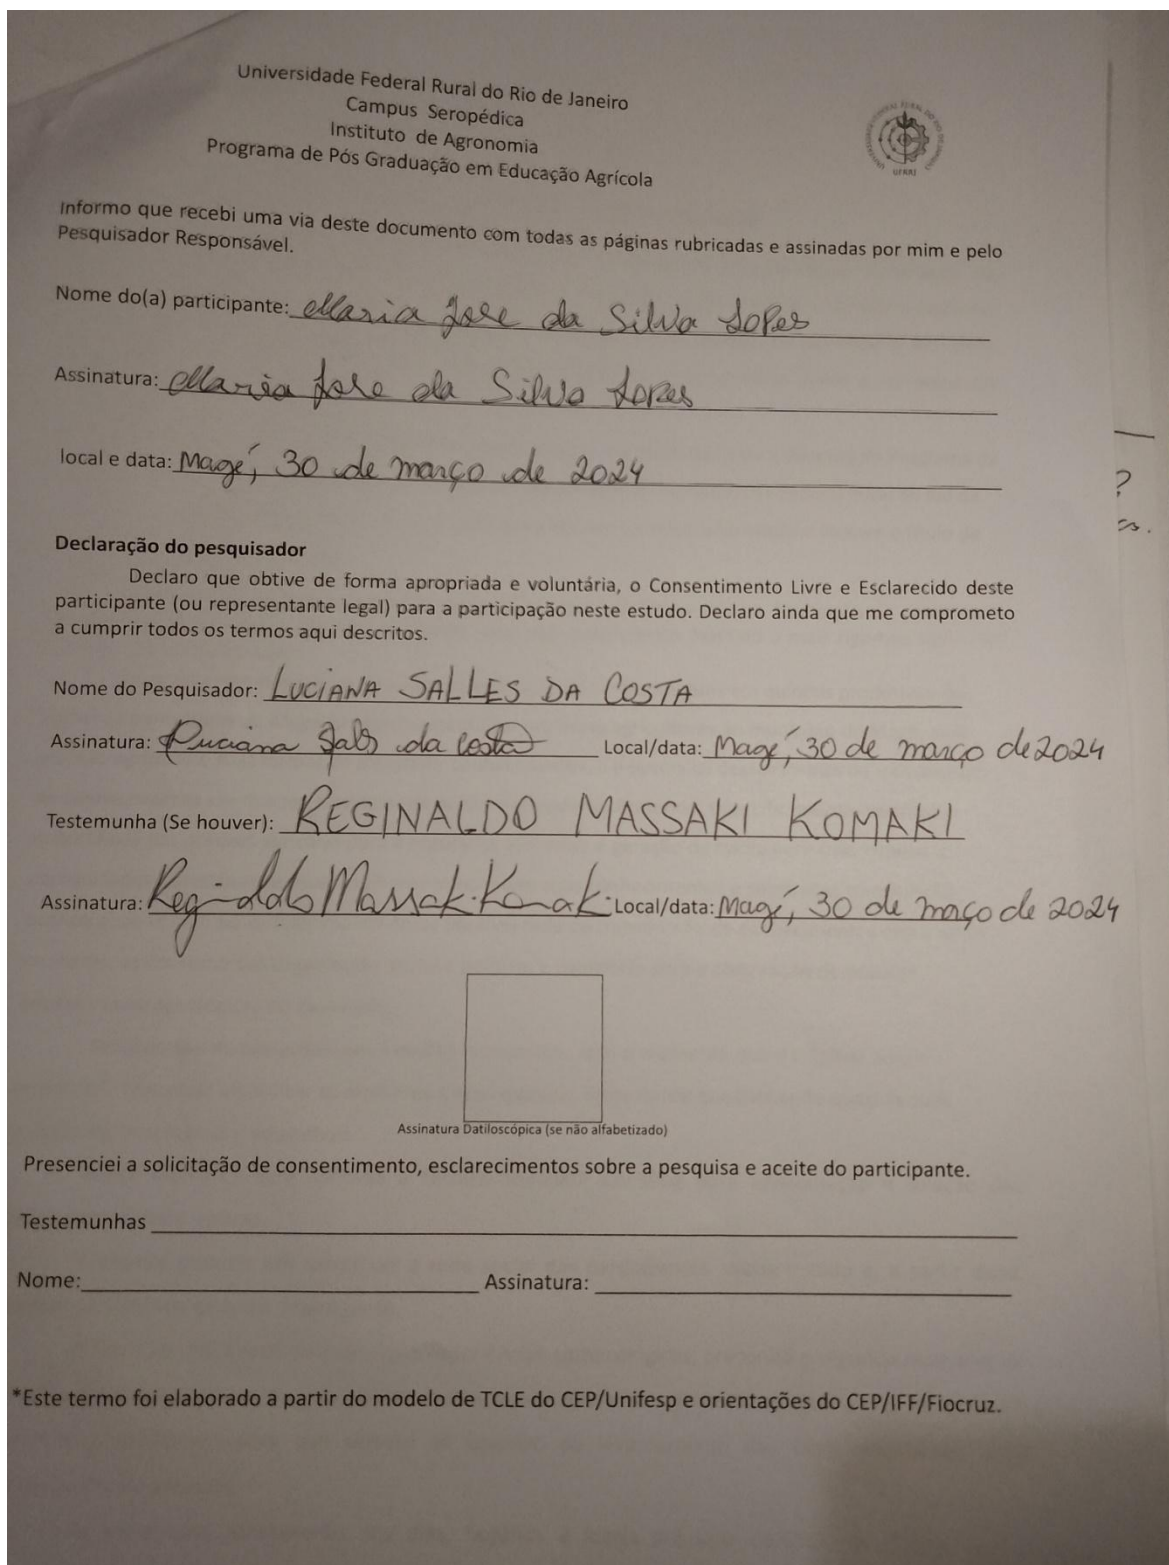 Universidade Federal Rural do Rio de Janeiro
Campus Seropédica
Instituto de Agronomia
Programa de Pós Graduação em Educação Agrícola
UFRRJ
Informo que recebi uma via deste documento com todas as páginas rubricadas e assinadas por mim e pelo
Pesquisador Responsável.
Nome do(a) participante: Maria Jose da Silva Lopes
Assinatura: Maria Jose da Silva Lopes
local e data: Magé, 30 de março de 2024
?
Declaração do pesquisador
Declaro que obtive de forma apropriada e voluntária, o Consentimento Livre e Esclarecido deste
participante (ou representante legal) para a participação neste estudo. Declaro ainda que me comprometo
a cumprir todos os termos aqui descritos.
Nome do Pesquisador: LUCIANA SALLES DA COSTA
Assinatura: Luciana Salles da Costa Local/data: Magé, 30 de março de 2024
Testemunha (Se houver): REGINALDO MASSAKI KOMAKI
Assinatura: Reginaldo Massaki Komaki Local/data: Magé, 30 de março de 2024
Assinatura Datiloscópica (se não alfabetizado)
Presenciei a solicitação de consentimento, esclarecimentos sobre a pesquisa e aceite do participante.
Testemunhas
Nome: Assinatura:
*Este termo foi elaborado a partir do modelo de TCLE do CEP/Unifesp e orientações do CEP/IFF/Fiocruz.